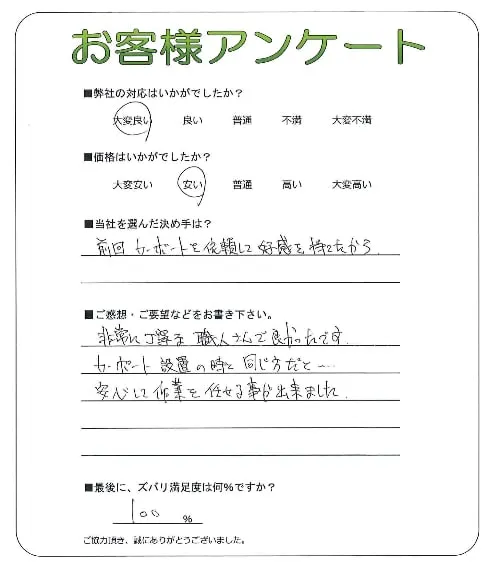 お客様アンケート
■弊社の対応はいかがでしたか?
大変良い 良い 普通 不満 大変不満
■価格はいかがでしたか?
大変安い 安い 普通 高い 大変高い
■当社を選んだ決め手は?
前回カーポートを依頼して好感を持てたから.
■ご感想・ご要望などをお書き下さい。
非常に丁寧な職人さんで良かったです.
カーポート設置の時と同じ方だと…
安心して作業を任せる事が出来ました.
■最後に、ズバリ満足度は何%ですか?
100 %
ご協力頂き、誠にありがとうございました。